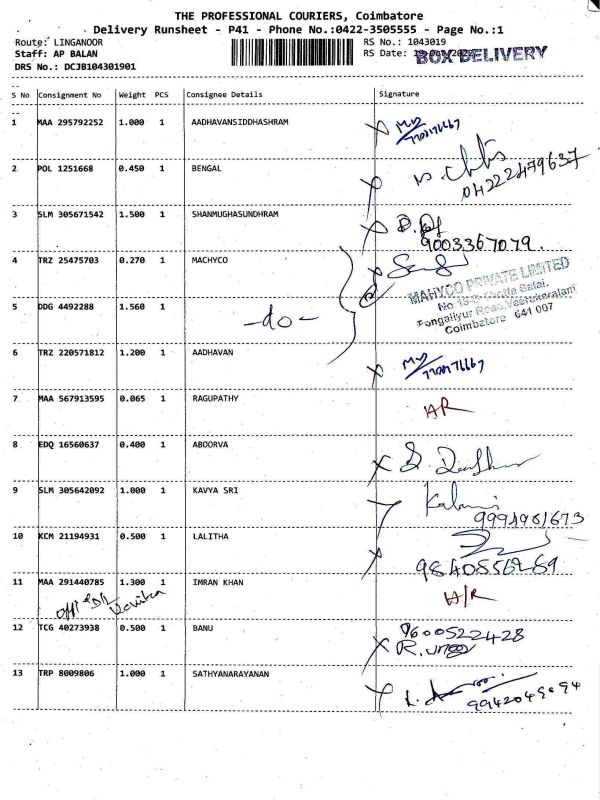 THE PROFESSIONAL COURIERS, Coimbatore
Delivery Runsheet - P41 - Phone No.:0422-3505555 - Page No.:1
Route: LINGANOOR
RS No.: 1043019
Staff: AP BALAN
RS Date:
BOX DELIVERY
DRS No.: DCJB104301901
S No Consignment No Weight PCS Consignee Details Signature
1 MAA 295792252 1.000 1 AADHAVANSIDDHASHRAM
2 POL 1251668 0.450 1 BENGAL
04222479637
3 SLM 305671542 1.500 1 SHANMUGHASUNDHRAM
9003367079.
4 TRZ 25475703 0.270 1 MACHYCO
MAHYCO PRIVATE LIMITED
5 DDG 4492288 1.560 1
-do-
Coimbatore 641 007
6 TRZ 220571812 1.200 1 AADHAVAN
7 MAA 567913595 0.065 1 RAGUPATHY
8 EDQ 16560637 0.400 1 ABOORVA
9 SLM 305642092 1.000 1 KAVYA SRI
10 KCM 21194931 0.500 1 LALITHA
11 MAA 291440785 1.300 1 IMRAN KHAN
12 TCG 40273938 0.500 1 BANU
9600522428
13 TRP 8009806 1.000 1 SATHYANARAYANAN